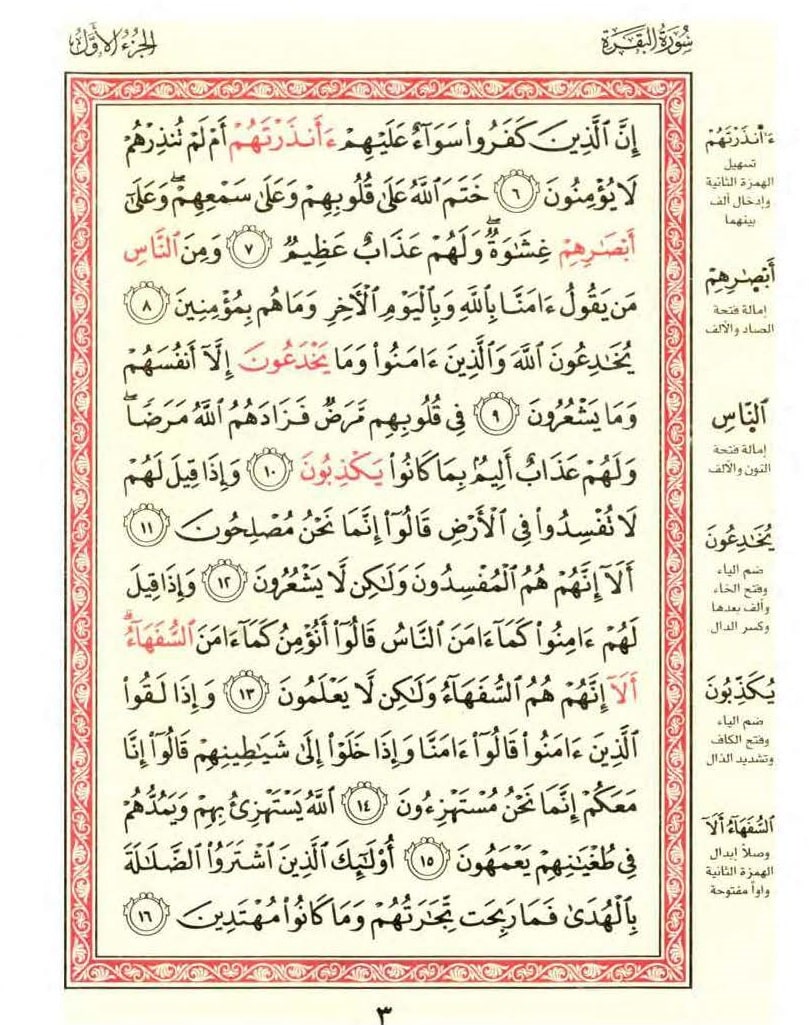 سُورَةُ البَقَرَةِ
الجُزْءُ الأَوَّلُ
إِنَّ ٱلَّذِينَ كَفَرُوا۟ سَوَآءٌ عَلَيْهِمْ ءَأَنذَرْتَهُمْ أَمْ لَمْ تُنذِرْهُمْ
لَا يُؤْمِنُونَ ٦ خَتَمَ ٱللَّهُ عَلَىٰ قُلُوبِهِمْ وَعَلَىٰ سَمْعِهِمْ ۖ وَعَلَىٰٓ
أَبْصَـٰرِهِمْ غِشَـٰوَةٌ ۖ وَلَهُمْ عَذَابٌ عَظِيمٌ ٧ وَمِنَ ٱلنَّاسِ
مَن يَقُولُ ءَامَنَّا بِٱللَّهِ وَبِٱلْيَوْمِ ٱلْـَٔاخِرِ وَمَا هُم بِمُؤْمِنِينَ ٨
يُخَـٰدِعُونَ ٱللَّهَ وَٱلَّذِينَ ءَامَنُوا۟ وَمَا يَخْدَعُونَ إِلَّآ أَنفُسَهُمْ
وَمَا يَشْعُرُونَ ٩ فِى قُلُوبِهِم مَّرَضٌ فَزَادَهُمُ ٱللَّهُ مَرَضًا ۖ
وَلَهُمْ عَذَابٌ أَلِيمٌۢ بِمَا كَانُوا۟ يَكْذِبُونَ ١٠ وَإِذَا قِيلَ لَهُمْ
لَا تُفْسِدُوا۟ فِى ٱلْأَرْضِ قَالُوٓا۟ إِنَّمَا نَحْنُ مُصْلِحُونَ ١١
أَلَآ إِنَّهُمْ هُمُ ٱلْمُفْسِدُونَ وَلَـٰكِن لَّا يَشْعُرُونَ ١٢ وَإِذَا قِيلَ
لَهُمْ ءَامِنُوا۟ كَمَآ ءَامَنَ ٱلنَّاسُ قَالُوٓا۟ أَنُؤْمِنُ كَمَآ ءَامَنَ ٱلسُّفَهَآءُ ۗ
أَلَآ إِنَّهُمْ هُمُ ٱلسُّفَهَآءُ وَلَـٰكِن لَّا يَعْلَمُونَ ١٣ وَإِذَا لَقُوا۟
ٱلَّذِينَ ءَامَنُوا۟ قَالُوٓا۟ ءَامَنَّا وَإِذَا خَلَوْا۟ إِلَىٰ شَيَـٰطِينِهِمْ قَالُوٓا۟ إِنَّا
مَعَكُمْ إِنَّمَا نَحْنُ مُسْتَهْزِءُونَ ١٤ ٱللَّهُ يَسْتَهْزِئُ بِهِمْ وَيَمُدُّهُمْ
فِى طُغْيَـٰنِهِمْ يَعْمَهُونَ ١٥ أُو۟لَـٰٓئِكَ ٱلَّذِينَ ٱشْتَرَوُا۟ ٱلضَّلَـٰلَةَ
بِٱلْهُدَىٰ فَمَا رَبِحَت تِّجَـٰرَتُهُمْ وَمَا كَانُوا۟ مُهْتَدِينَ ١٦
ءَا۬نذَرْتَهُمْ
تسهيل
الهمزة الثانية
وإدخال ألف
بينهما
أَبْصَـٰرِهِمْ
إمالة فتحة
الصاد والألف
ٱلنَّاسِ
إمالة فتحة
النون والألف
يُخَـٰدِعُونَ
ضم الياء
وفتح الخاء
وألف بعدها
وكسر الدال
يُكَذِّبُونَ
ضم الياء
وفتح الكاف
وتشديد الذال
ٱلسُّفَهَآءُ أَلَآ
وصلاً إبدال
الهمزة الثانية
واواً مفتوحة
٣